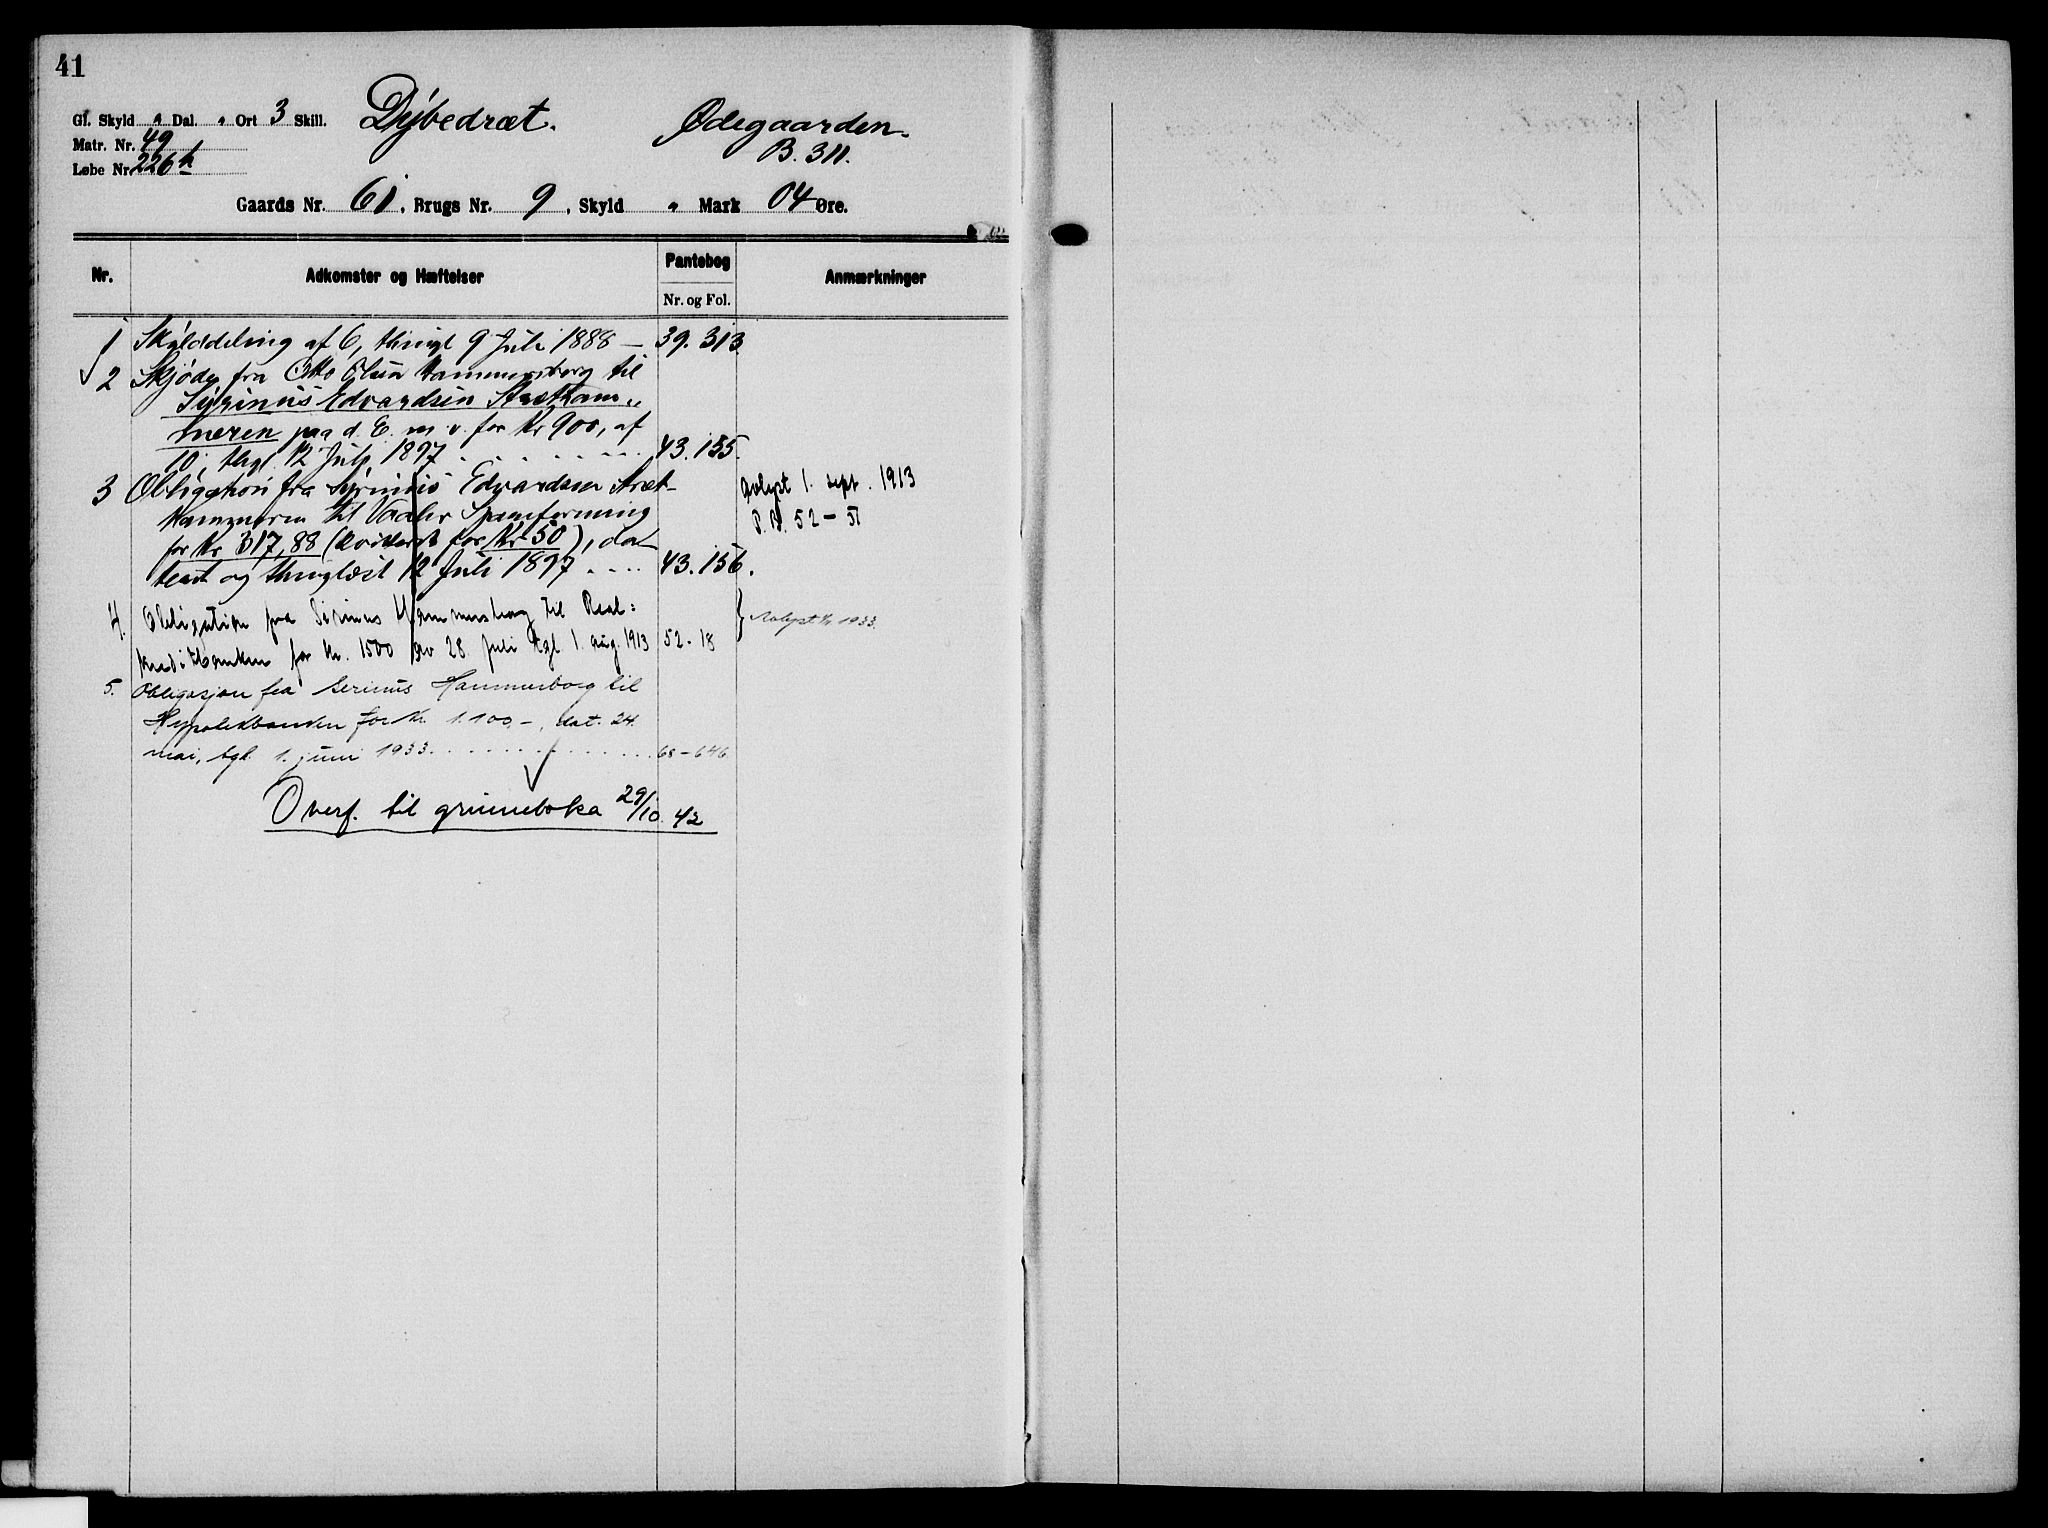 41
Gl. Skyld " Dal. " Ort 3 Skill.
Dybedræt.
Ødegaarden.
Matr. Nr. 49
B. 311.
Løbe Nr. 226 h
Gaards Nr. 61, Brugs Nr. 9, Skyld " Mark 04 Øre.
Nr.
Adkomster og Hæftelser
Pantebog
Nr. og Fol.
Anmærkninger
1 Skylddeling af 6, thingl 9 Juli 1888 — 39. 313.
2 Skjøde fra Otto Olsen Hammersborg til
Syrinus Edvardsen Strætkam„
meren paa d. E. m. v. for Kr 900, af
10, thgl. 12 Juli 1897 . . . . . . 43. 155.
3 Obligation fra Syrinus Edvardsen Stræt-
kammeren til Vaaler Spareforening
for Kr 317,88 (kvitteret for Kr 50), da-
teret og thinglæst 12 Juli 1897 . . . . 43. 156.
Avlyst 1. sept. 1913
P. B. 52 – 51
4. Obligation fra Sirinus Hammersborg til Real=
kreditbanken for kr. 1500 av 28 juli tgl 1. aug. 1913 52 - 18
Avlyst 1933.
5. Obligasjon fra Serinus Hammerborg til
Hypotekbanken for kr. 1.100,-, dat. 24.
mai, tgl. 1. juni 1933. . . . . . . . . . 68 – 646
Overf. til grunneboka 29/10. 42